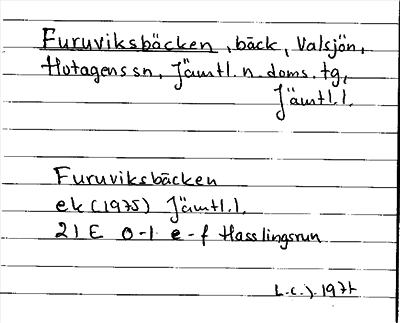 Furuviksbäcken, bäck, Valsjön,
Hotagens sn, Jämtl. n. doms. tg,
Jämtl. l.
Furuviksbäcken
ek (1975) Jämtl. l.
21 E 0-1 e-f Hasslingsrun